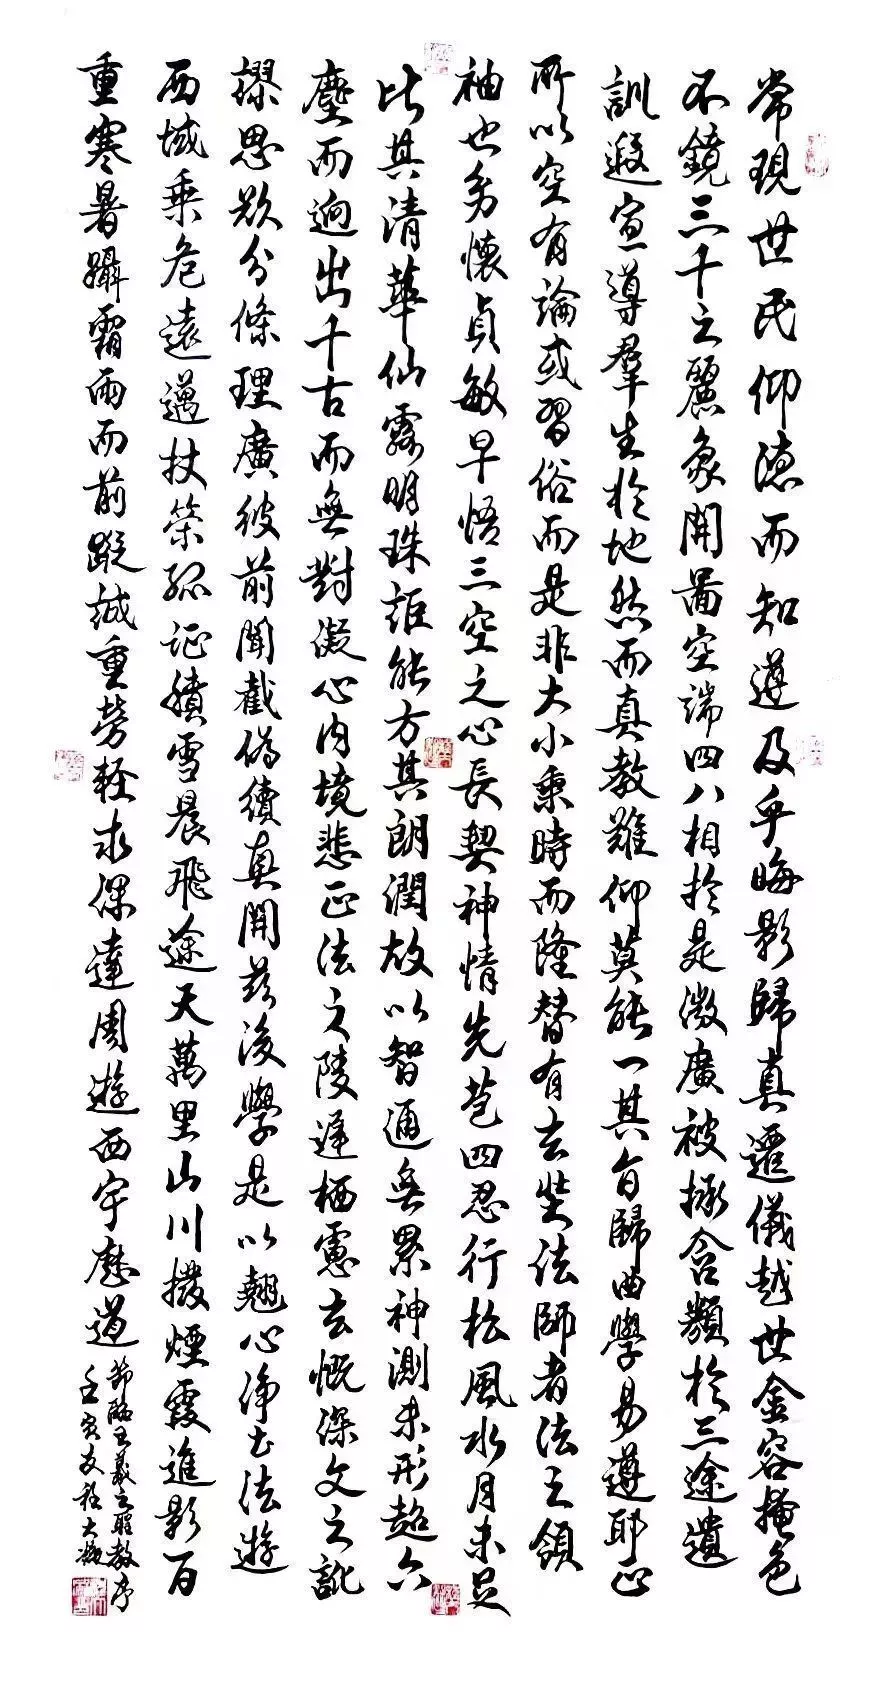 常現世民仰德而知遵及乎晦影歸真遷儀越世金容掩色
不鏡三千之麗象開圖空端四八相於是微廣被拯含類於三途遺
訓遐宣導羣生於地然而真教難仰莫能一其旨歸曲學易遵耶正
所以空有論或習俗而是非大小乘時而隆替有玄奘法師者法之領
袖也幼懷貞敏早悟三空之心長契神情先苞四忍行松風水月未足
比其清華仙露明珠詎能方其朗潤故以智通無累神測未形超六
塵而迥出千古而無對凝心內境悲正法之陵遲栖慮玄慨深文之訛
謬思欲分條理廣彼前聞截偽續真開茲後學是以翹心淨土法遊
西域乘危遠邁杖策孤征積雪晨飛途天萬里山川撥煙霞進影百
重寒暑躡霜雨而前蹤誠重勞輕求深達周遊西宇歷道
節臨王羲之聖教序
壬寅